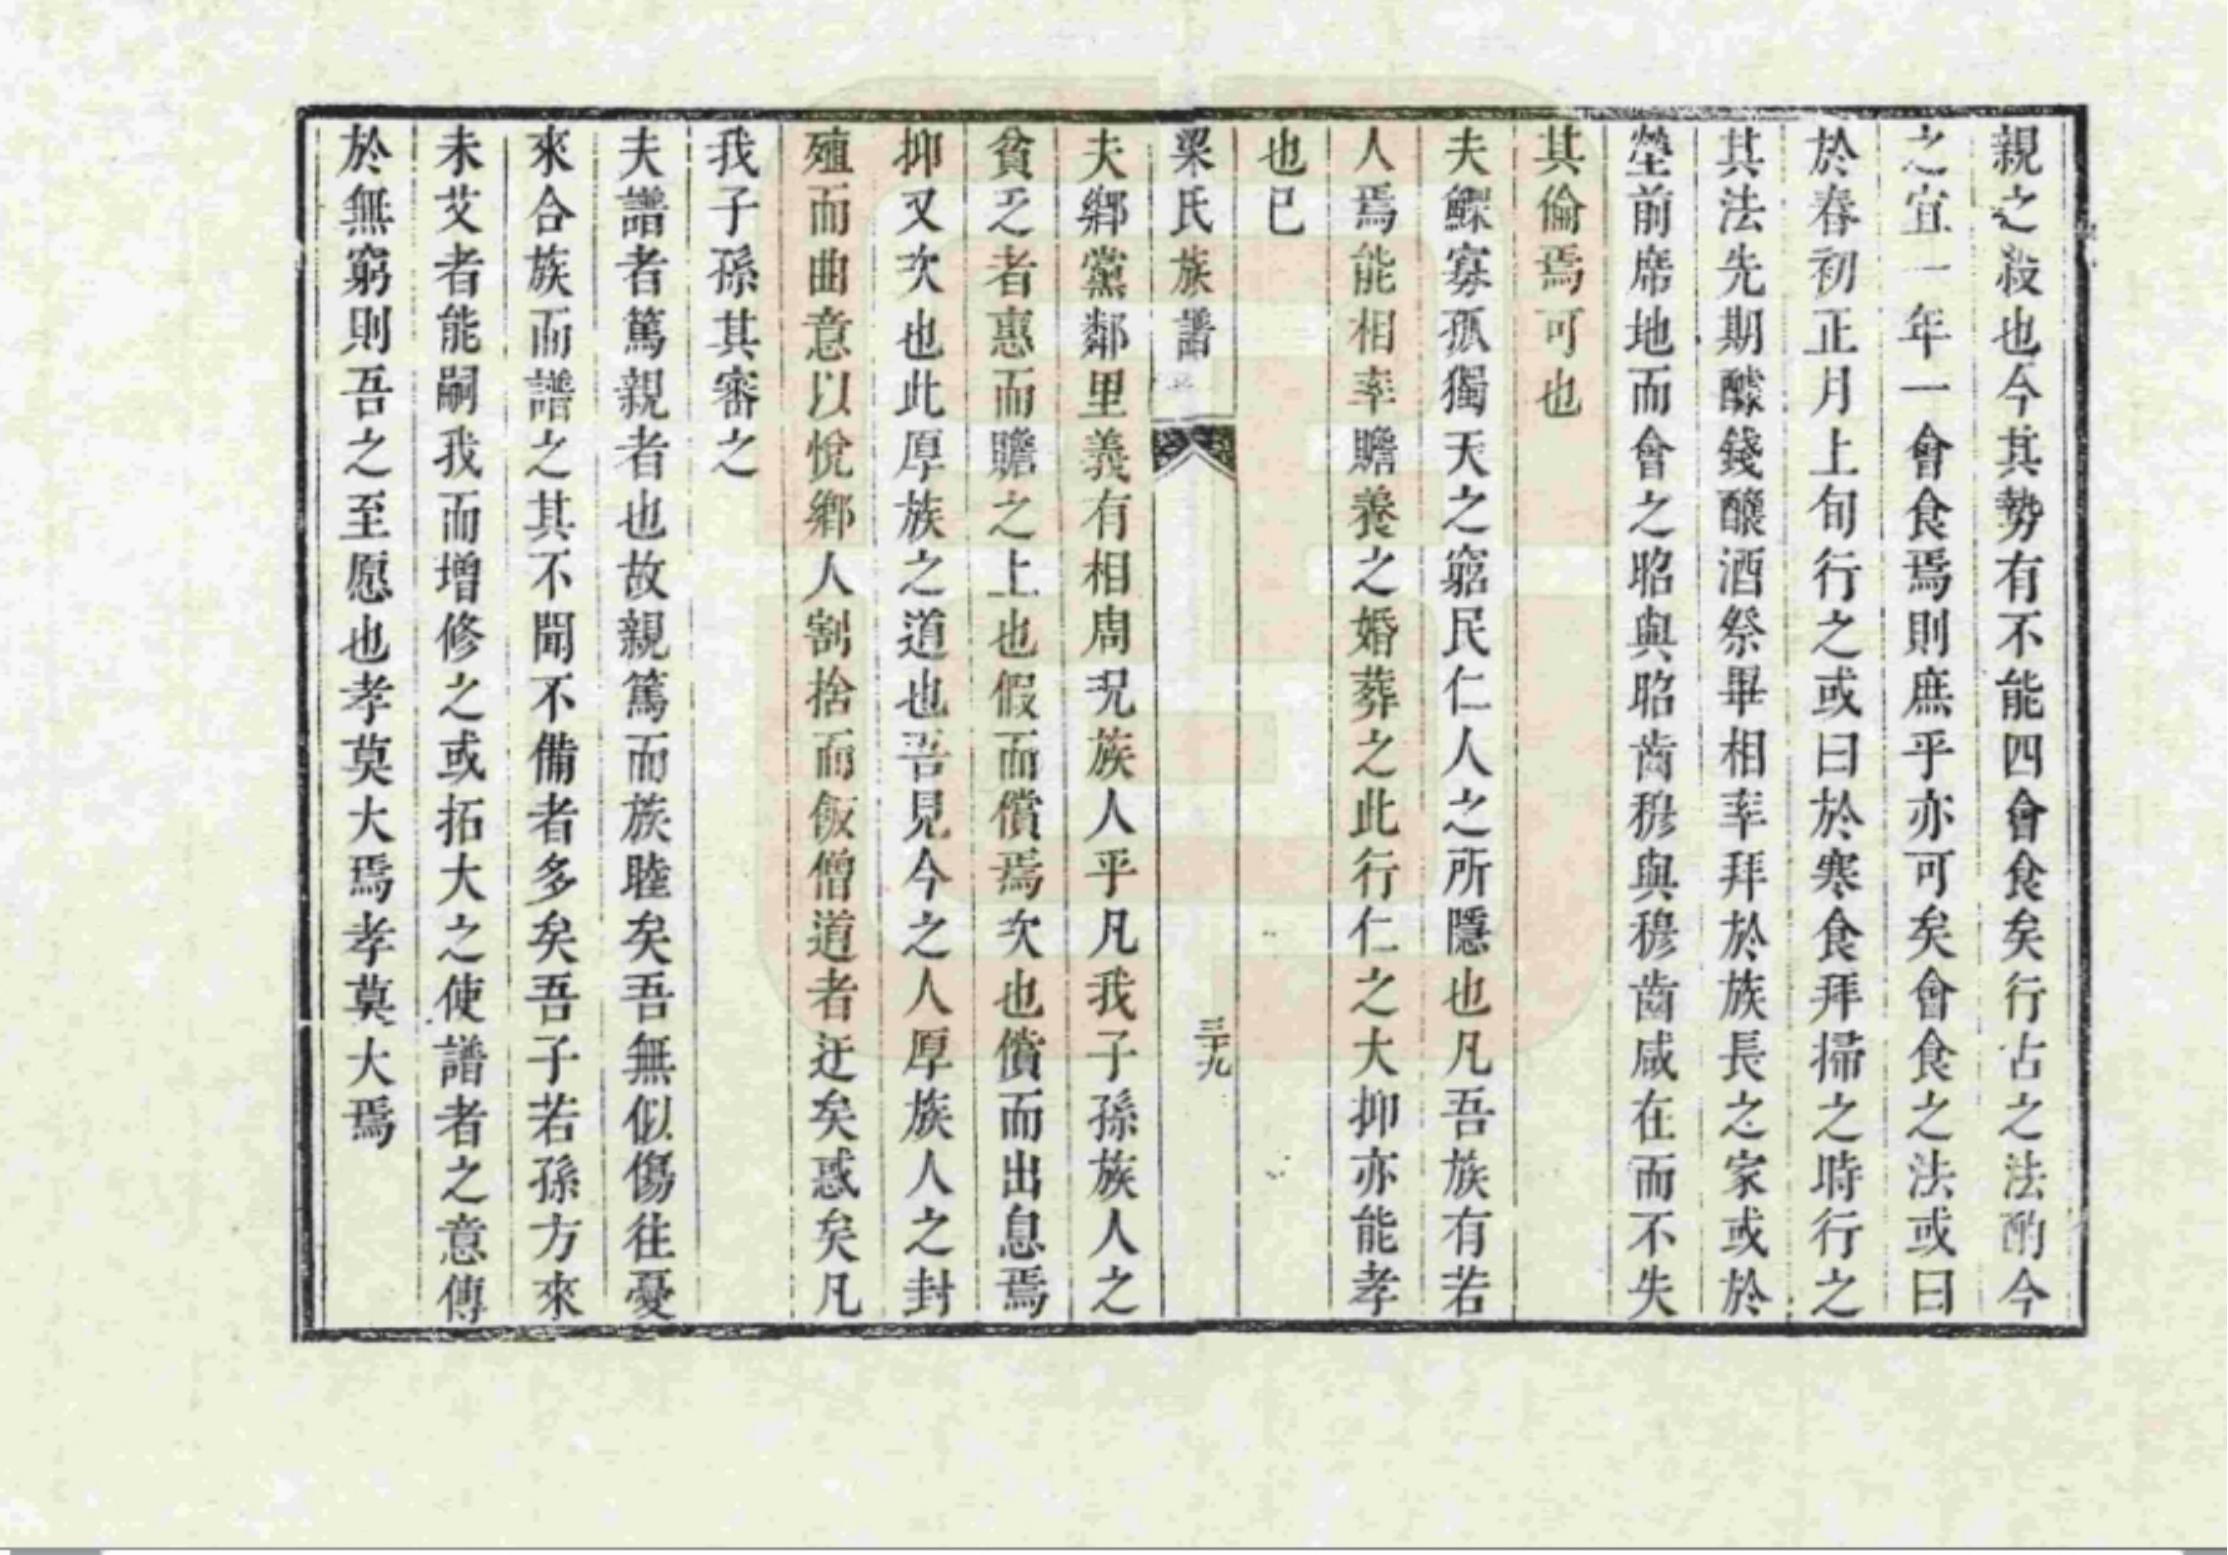 親之殺也今其勢有不能四會食矣行古之法酌今
之宜一年一會食焉則庶乎亦可矣會食之法或曰
於春初正月上旬行之或曰於寒食拜掃之時行之
其法先期醵錢釀酒祭畢相率拜於族長之家或於
塋前席地而會之昭與昭齒穆與穆齒咸在而不失
其倫焉可也
夫鰥寡孤獨天之窮民仁人之所隱也凡吾族有若
人焉能相率贍養之婚葬之此行仁之大抑亦能孝
也已
梁氏族譜
三十九
夫鄉黨鄰里義有相周況族人乎凡我子孫族人之
貧乏者惠而贍之上也假而償焉次也償而出息焉
抑又次也此厚族之道也吾見今之人厚族人之封
殖而曲意以悅鄉人割捨而飯僧道者迂矣惑矣凡
我子孫其審之
夫譜者篤親者也故親篤而族睦矣吾無似傷往憂
來合族而譜之其不聞不備者多矣吾子若孫方來
未艾者能嗣我而增修之或拓大之使譜者之意傳
於無窮則吾之至愿也孝莫大焉孝莫大焉